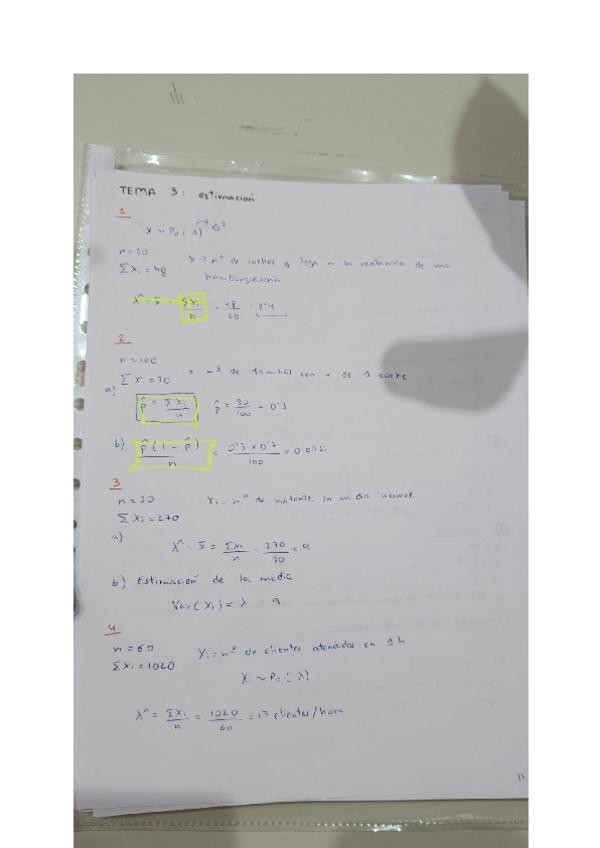 TEMA 3: estimacion
1
X ~ Po (λ)
n = 20
∑ Xi = 48
nº de coches q llega a la ventanilla de una
hamburgueseria
λ^ = x̄ = ∑Xi / n = 48 / = 2'4
2
n = 100
∑ Xi = 30 nº de familias con + de 1 coche
a)
p̂ = ∑ Xi / n p̂ = 30 / 100 = 0'3
b) p̂ (1 - p̂) / n = 0'3 × 0'7 / 100 = 0'0021
3
n = 30 Xi = nº de en un dia laboral
∑ Xi = 270
a)
λ^ = x̄ = ∑Xi / n = 270 / 30 = 9
b) Estimación de la media
Var (Xi) = λ = 9
4
n = 60 Xi = nº de clientes atendidos en 1 h
∑ Xi = 1020
Xi ~ Po (λ)
λ^ = ∑Xi / n = 1020 / 60 = 17 clientes/hora